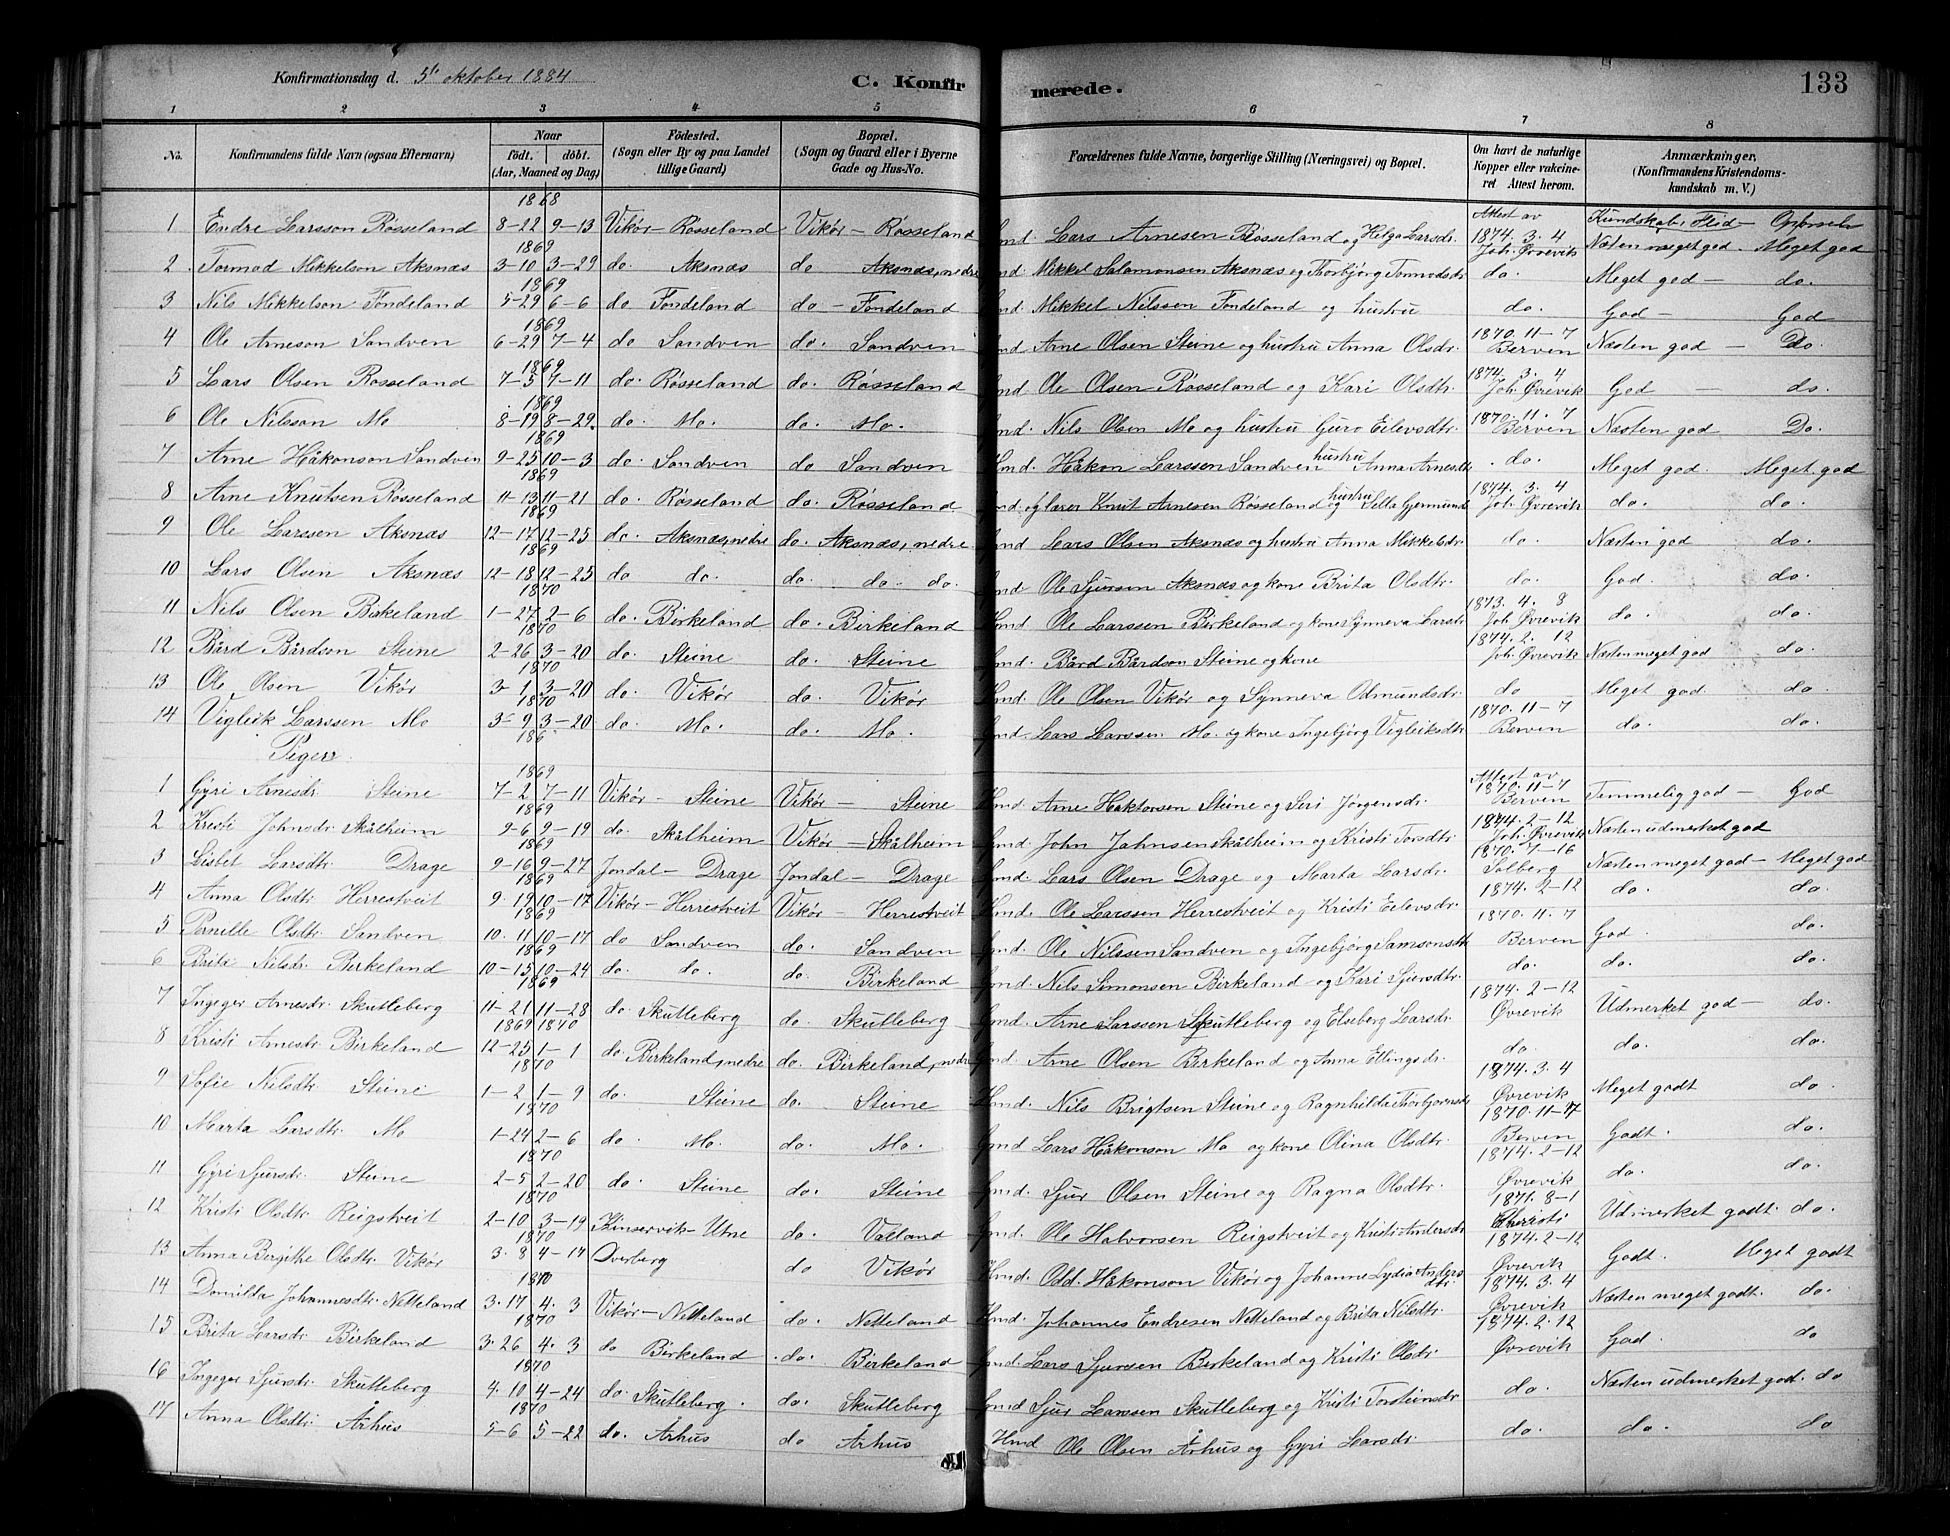 Konfirmationsdag d. 5te oktober 1884
C. Konfirmerede.
133
1 2 3 4 5 6 7 8
No. Konfirmandens fulde Navn (ogsaa Efternavn) Naar födt. döbt. (Aar, Maaned og Dag) Födested. (Sogn eller By og paa Landet tillige Gaard) Bopæl. (Sogn og Gaard eller i Byerne Gade og Hus-No. Forældrenes fulde Navne, borgerlige Stilling (Næringsvei) og Bopæl. Om havt de naturlige Kopper eller vakcineret Attest herom. Anmærkninger. (Konfirmandens Kristendomskundskab m. V.)
1868 Attest av Kundskab: Flid – Opførsel
1 Endre Larsson Røsseland 8-22 9-13 Vikör – Røsseland Vikör – Røsseland Gmd. Lars Arnesen Røsseland og Helga Larsdr. 1874. 3. 4 Joh. Øvrevik Næsten meget god – Meget god
1869
2 Tormod Mikkelson Aksnæs 3-10 3-29 do. Aksnæs do Aksnæs, nedre Gmd. Mikkel Salamonsen Aksnæs og Thorbjörg Tormodsdr do. Meget god – do.
1869
3 Nils Mikkelson Fondeland 5-29 6-6 do Fondeland do – Fondeland Gmd. Mikkel Nilssen Fondeland og hustru do. God – God
1869
4 Ole Arneson Sandven 6-29 7-4 do Sandven do. Sandven Gmd Arne Olsen Steine og hustru Anna Olsdr. 1870-11-7 Berven Næsten god – Do.
1869
5 Lars Olsen Røsseland 7-5 7-11 do. Røsseland do. Røsseland Gmd Ole Olsen Røsseland og Kari Olsdtr. 1874. 3. 4 Joh. Øvrevik God – do.
1869
6 Ole Nilsson Mo 8-19 8-29. do. Mo. do. Mo. Gmd. Nils Olsen Mo og hustru Guro Eilevsdtr. 1870. 11. 7 Berven Næsten god Do.
1869
7 Arne Håkonson Sandven 9-25 10-3 do. Sandven do Sandven Gmd. Håkon Larssen Sandven hustru Anna Arnesdtr. do. Meget god. Meget god
1869
8 Arne Knutsen Røsseland 11-13 11-21 do. Røsseland do. Røsseland Gmd og lærer Knut Arnesen Røsseland og hustru Sella Gjermunds 1874. 3. 4 Joh. Øvrevik do. do.
1869
9 Ole Larssen Aksnæs 12-17 12-25 do. Aksnæs, nedre do. Aksnæs, nedre Gmd Lars Olsen Aksnæs og hustru Anna Mikkelsdr. do. Næsten god do.
1869
10 Lars Olsen Aksnæs 12-18 12-25 do do. do. do. do. Gmd. Ole Sjursen Aksnæs og kone Brita Olsdtr. do. God. do.
1870
11 Nils Olsen Birkeland 1-27 2-6 do. Birkeland do. Birkeland Gmd. Ole Larssen Birkeland og kone Synneva Larsdr 1873. 4. 8 Joh. Øvrevik do. do.
1870
12 Bård Bårdson Steine 2-26 3-20 do. Steine do. Steine Gmd. Bård Bårdson Steine og kone 1874. 2. 12 Joh. Øvrevik Næsten meget god do.
1870
13 Ole Olsen Vikör 3-1 3-20 do. Vikör do. Vikör Gmd. Ole Olsen Vikör og Synneva Odmundsdr. do Meget god. do.
1870
14 Vigleik Larssen Mo 3-9 3-20 do. Mo. do. Mo. Gmd. Lars Larssen Mo. og kone Ingebjörg Vigleiksdtr 1870. 11-7 Berven do. do.
186
Piger.
1869 Attest av
1 Gyri Arnesdr. Steine 7-2 7-11 Vikör – Steine Vikör – Steine Gmd. Arne Haktorsen Steine og Siri Jörgensdr. 1870. 11-7 Berven Temmelig god – God
1869
2 Kristi Johnsdr. Skålheim 9-6 9-19 do. Skålheim Vikör – Skålheim Gmd. John Johnsen Skålheim og Kristi Torsdtr. 1874-2-12 Joh. Øvrevik Næsten udmerket god
1869
3 Lisbet Larsdtr. Drage 9-16 9-27 Jondal – Drage Jondal – Drage Gmd. Lars Olsen Drage og Marta Larsdr. 1870-7-16 Solberg Næsten meget god – Meget god
1869
4 Anna Olsdtr Herrestveit 9-19 10-17 Vikör – Herrestveit Vikör – Herrestveit Gmd. Ole Larssen Herrestveit og Kristi Eilevsdr. 1874. 2-12 do. do.
1869
5 Pernille Olsdtr. Sandven 10-11 10-17 do Sandven do. Sandven Gmd. Ole Nilssen Sandven og Ingebjörg Samsonsdtr 1870. 11. 7 Berven God. do.
1869
6 Brita Nilsdr. Birkeland 10-15 10-24 do. do. do. Birkeland Gmd. Nils Simonsen Birkeland og Kari Sjursdtr. do. do. do.
1869
7 Ingeger Arnesdr. Skutleberg 11-21 11-28 do. Skutleberg do. Skutleberg Gmd. Arne Larssen Skutleberg og Elseberg Larsdr. 1874. 2-12 Øvrevik Udmerket god – do.
1869 1870
8 Kristi Arnesdr. Birkeland 12-25 1-1 do. Birkeland, nedre do. Birkeland, nedre Gmd. Arne Olsen Birkeland og Anna Ellingsdr. do do. do.
1870
9 Sofie Nilsdtr. Steine 1-2 1-9 do. Steine do. Steine Hmd. Nils Brigtsen Steine og Ragnhilda Thorbjornsdr 1874. 3. 4 Øvrevik Meget godt do.
1870
10 Marta Larsdtr. Mo 1-24 2-6 do. Mo. do. Mo. Gmd Lars Håkonson Mo og kone Olina Olsdtr. 1870. 11-17 Berven Godt. do.
1870
11 Gyri Sjursdr. Steine 2-5 2-20 do. Steine do. Steine Gmd. Sjur Olsen Steine og Ragna Olsdtr. 1874. 2-12 Øvrevik do. do.
1870
12 Kristi Olsdtr. Reigstveit 2-10 3-19 Kinservik – Utne do. Valland Gmd. Ole Halvorsen Reigstveit og Kristi Andersdr 1871. 8-1 Christi Udmerket godt. do.
1870
13 Anna Bergithe Olsdtr. Vikör 3. 8 4-17 Overberg do Vikör Hmd. Odd. Håkonson Vikör og Johanne Lydia Andersdtr. 1874. 2-12 Øvrevik Godt. Meget godt
1870
14 Domilda Johannesdtr. Netteland 3. 17 4. 3 Vikör – Netteland do. Netteland Hmd. Johannes Endresen Netteland og Brita Nilsdtr. 1874. 3. 4 Øvrevik Næsten meget godt. do.
1870
15 Brita Larsdr. Birkeland 3. 26 4. 3 do Birkeland do. Birkeland Gmd. Lars Sjursen Birkeland og Kristi Olsdr. 1874. 2. 12 Øvrevik God. do
1870
16 Ingeger Sjursdr. Skutleberg 4. 10 4-24 do. Skutleberg. do. Skutleberg Gmd Sjur Larssen Skutleberg og Kristi Torsteinsdr do. Næsten udmerket god. do
1870
17 Anna Olsdtr. Århus 5-6 5-22 do. Århus do Århus Hmd Ole Olsen Århus og Gyri Larsdr. do. do. do